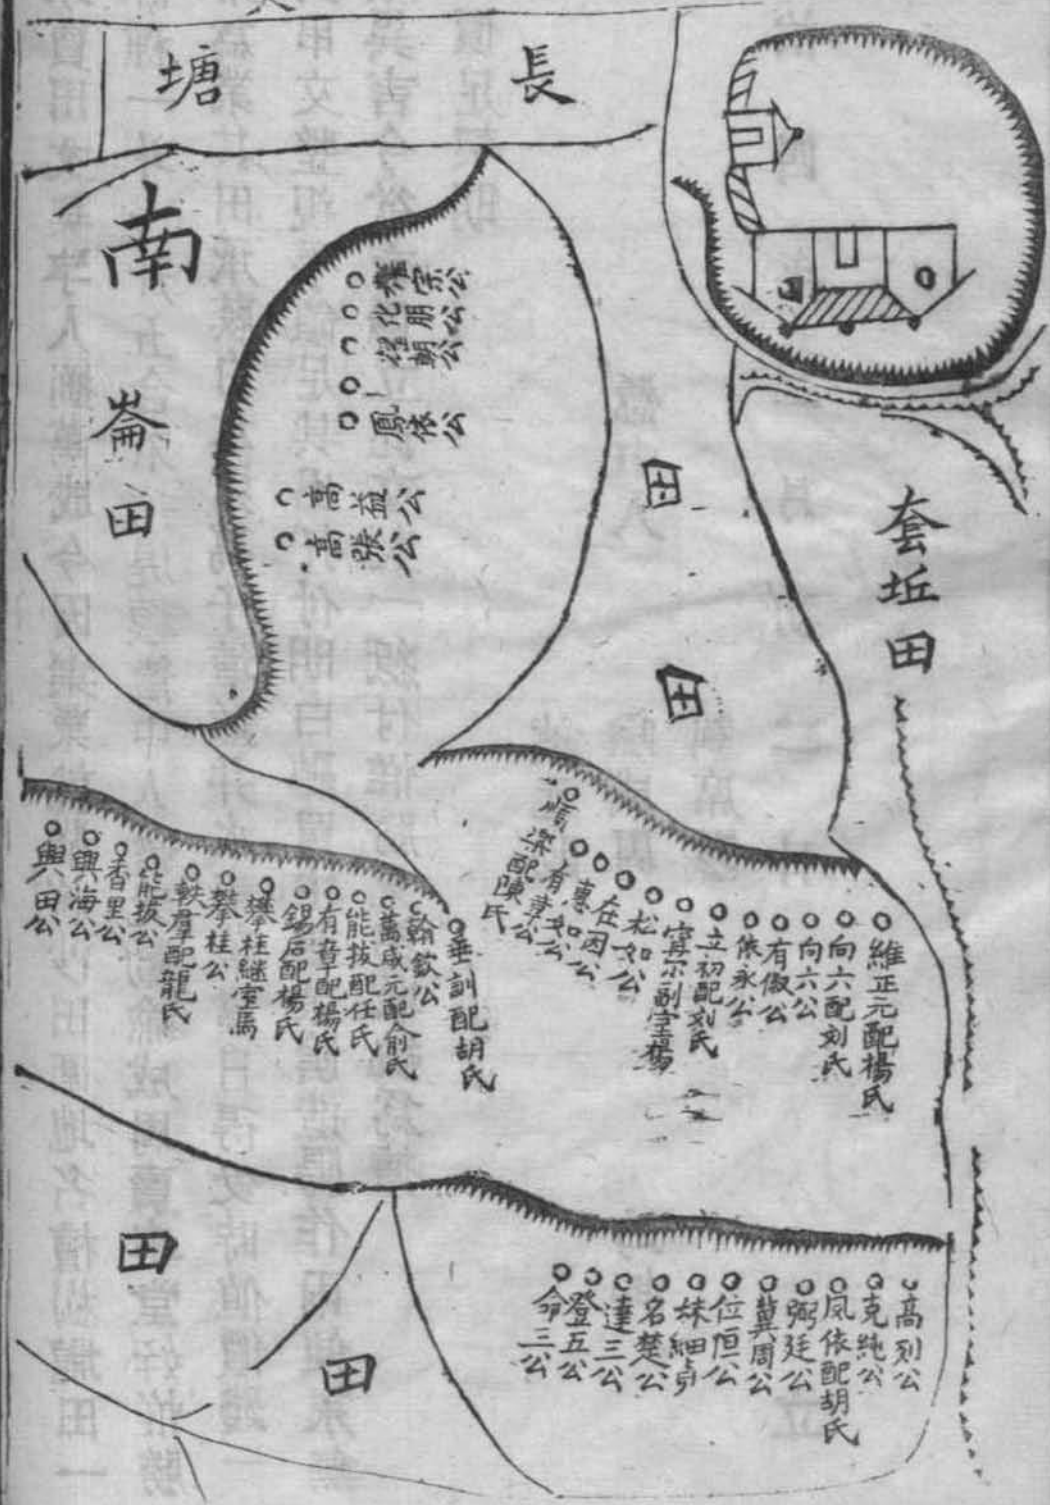 長塘
南
崙田
養宗公
化朋公
程朝公
鳳依公
高益公
高張公
田
田
套坵田
維正元配楊氏
向六配刘氏
向六公
有俶公
依永公
立初配刘氏
甯尔副室楊
松如公
在因公
惠如公
有章公
順梁配陳氏
垂訓配胡氏
翰欽公
萬咸元配俞氏
能拔配任氏
有章配楊氏
錫后配楊氏
攀桂継室馬
攀桂公
軼羣配龍氏
能拔公
香里公
興海公
興田公
田
田
高列公
克純公
凤依配胡氏
弼廷公
冀周公
位恒公
妹細
名楚公
達三公
登五公
命三公